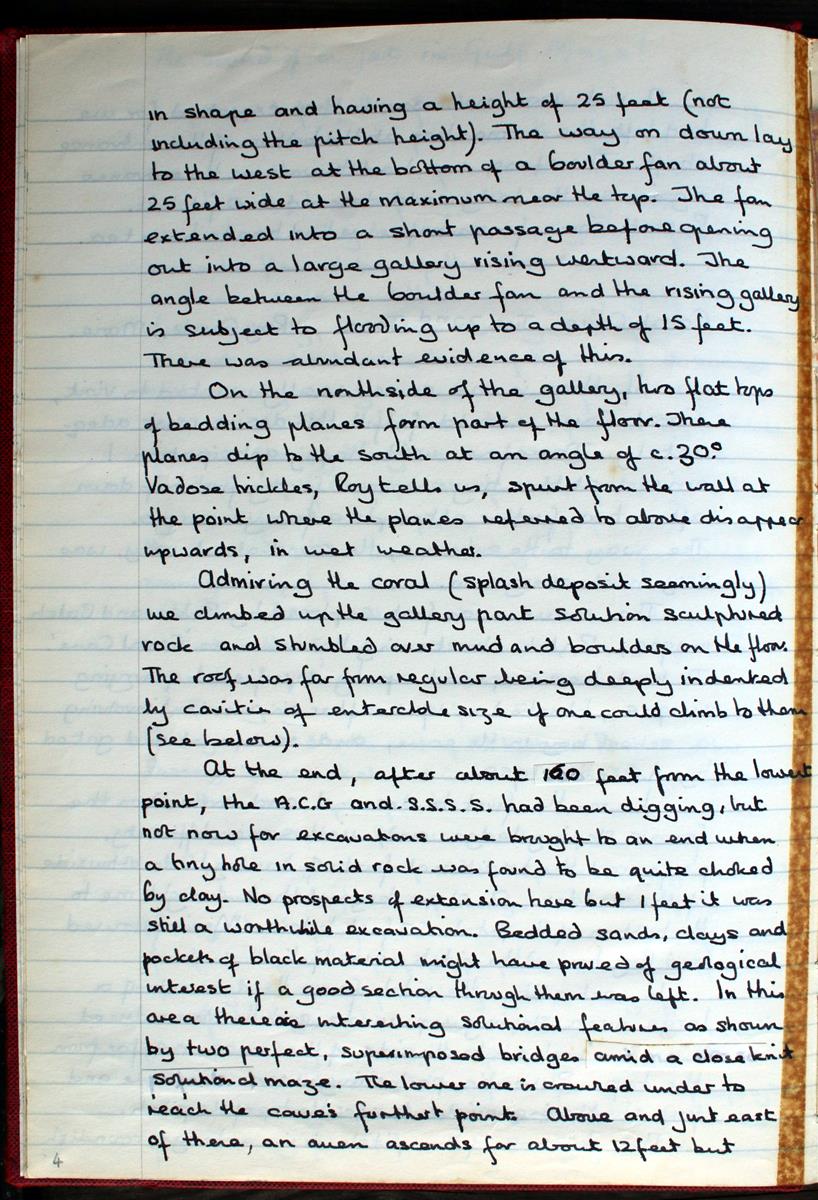 in shape and having a height of 25 feet (not
including the pitch height). The way on down lay
to the west at the bottom of a boulder fan about
25 feet wide at the maximum near the top. The fan
extended into a short passage before opening
out into a large gallery rising westward. The
angle between the boulder fan and the rising gallery
is subject to flooding up to a depth of 15 feet.
There was abundant evidence of this.
On the northside of the gallery, two flat tops
of bedding planes form part of the floor. These
planes dip to the south at an angle of c.30°.
Vadose trickles, Roy tells us, spurt from the wall at
the point where the planes referred to above disappear
upwards, in wet weather.
Admiring the coral (splash deposit seemingly)
we climbed up the gallery past solution sculptured
rock and stumbled over mud and boulders on the floor.
The roof was far from regular being deeply indented
by cavities of enterable size if one could climb to them
(see below).
At the end, after about 160 feet from the lowest
point, the A.C.G and S.S.S.S. had been digging, but
not now for excavations were brought to an end when
a tiny hole in solid rock was found to be quite choked
by clay. No prospects of extension here but I feel it was
still a worthwhile excavation. Bedded sands, clays and
pockets of black material might have proved of geological
interest if a good section through them was left. In this
area there is interesting solutional features as shown
by two perfect, superimposed bridges amid a close knit
solutional maze. The lower one is crawled under to
reach the cave's furthest point. Above and just east
of these, an aven ascends for about 12 feet but
4